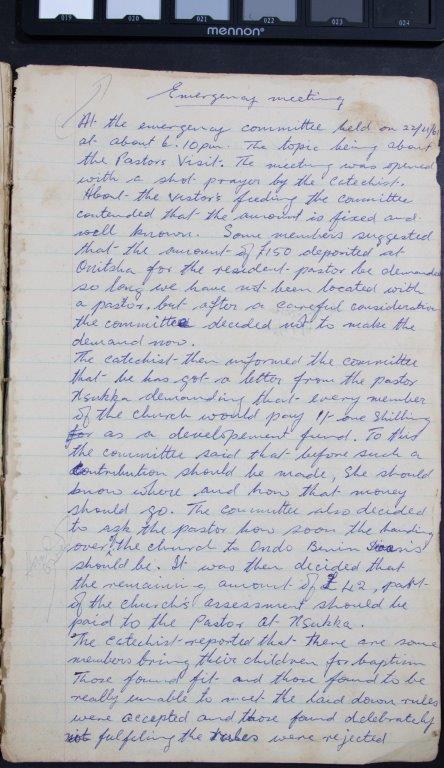 019 020 021 022 023 024
mennon®
Emergency meeting
At the emergency committee held on 22/11/61
at about 6.10pm. The topic being about
the Pastors Visit. The meeting was opened
with a shot prayer by the Catechist.
About the Vistors feeding the committee
contended that the amount is fixed and
well known. Some members suggested
that the amount of £150 deposited at
Onitsha for the resident pastor be demanded
so long we have not been located with
a pastor, but after a careful consideration
the committee decided not to make the
demand now.
The catechist then informed the committee
that he has got a letter from the pastor
Nsukka demanding that every member
of the church would pay 1/- one shilling
for as a developement fund. To this
the committee said that before such a
contribution should be made, She should
know where and how that money
should go. The committee also decided
to ask the pastor how soon the handing
over the church to Ondo Benin
should be. It was then decided that
the remaining amount of £42, part
of the church's assessment should be
paid to the Pastor at Nsukka.
The Catechist reported that there are some
members bring their children for baptism
Those found fit and those found to be
really unable to meet the laid down rules
were accepted and those found deleberately
not fulfiling the rules were rejected